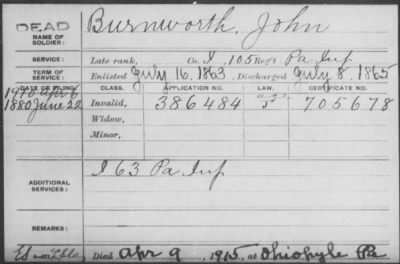 DEAD
NAME OF SOLDIER: Burnworth, John
SERVICE: Late rank, Co. I, 105 Reg't Pa Inf
TERM OF SERVICE: Enlisted July 16, 1863, Discharged July 8, 1865
DATE OF FILING. CLASS. APPLICATION NO. LAW. CERTIFICATE NO.
1910 Apr 6
1880 June 22 Invalid, 386484 705678
Widow,
Minor,
ADDITIONAL SERVICES: I 63 Pa Inf
REMARKS:
Died Apr 9, 1915, at Ohiopyle Pa